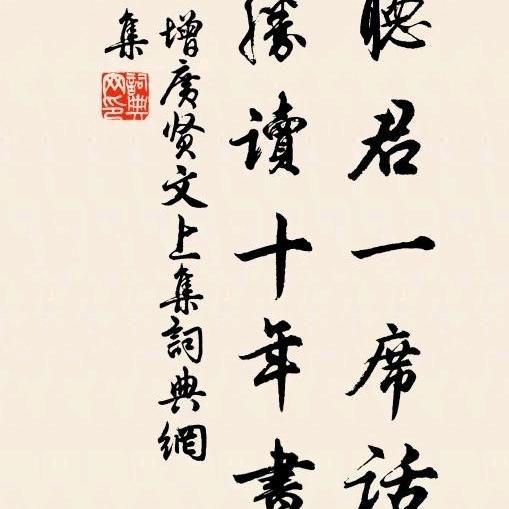 聽君一席話
勝讀十年書
增廣贤文上集詞典網
集
詞典
网印